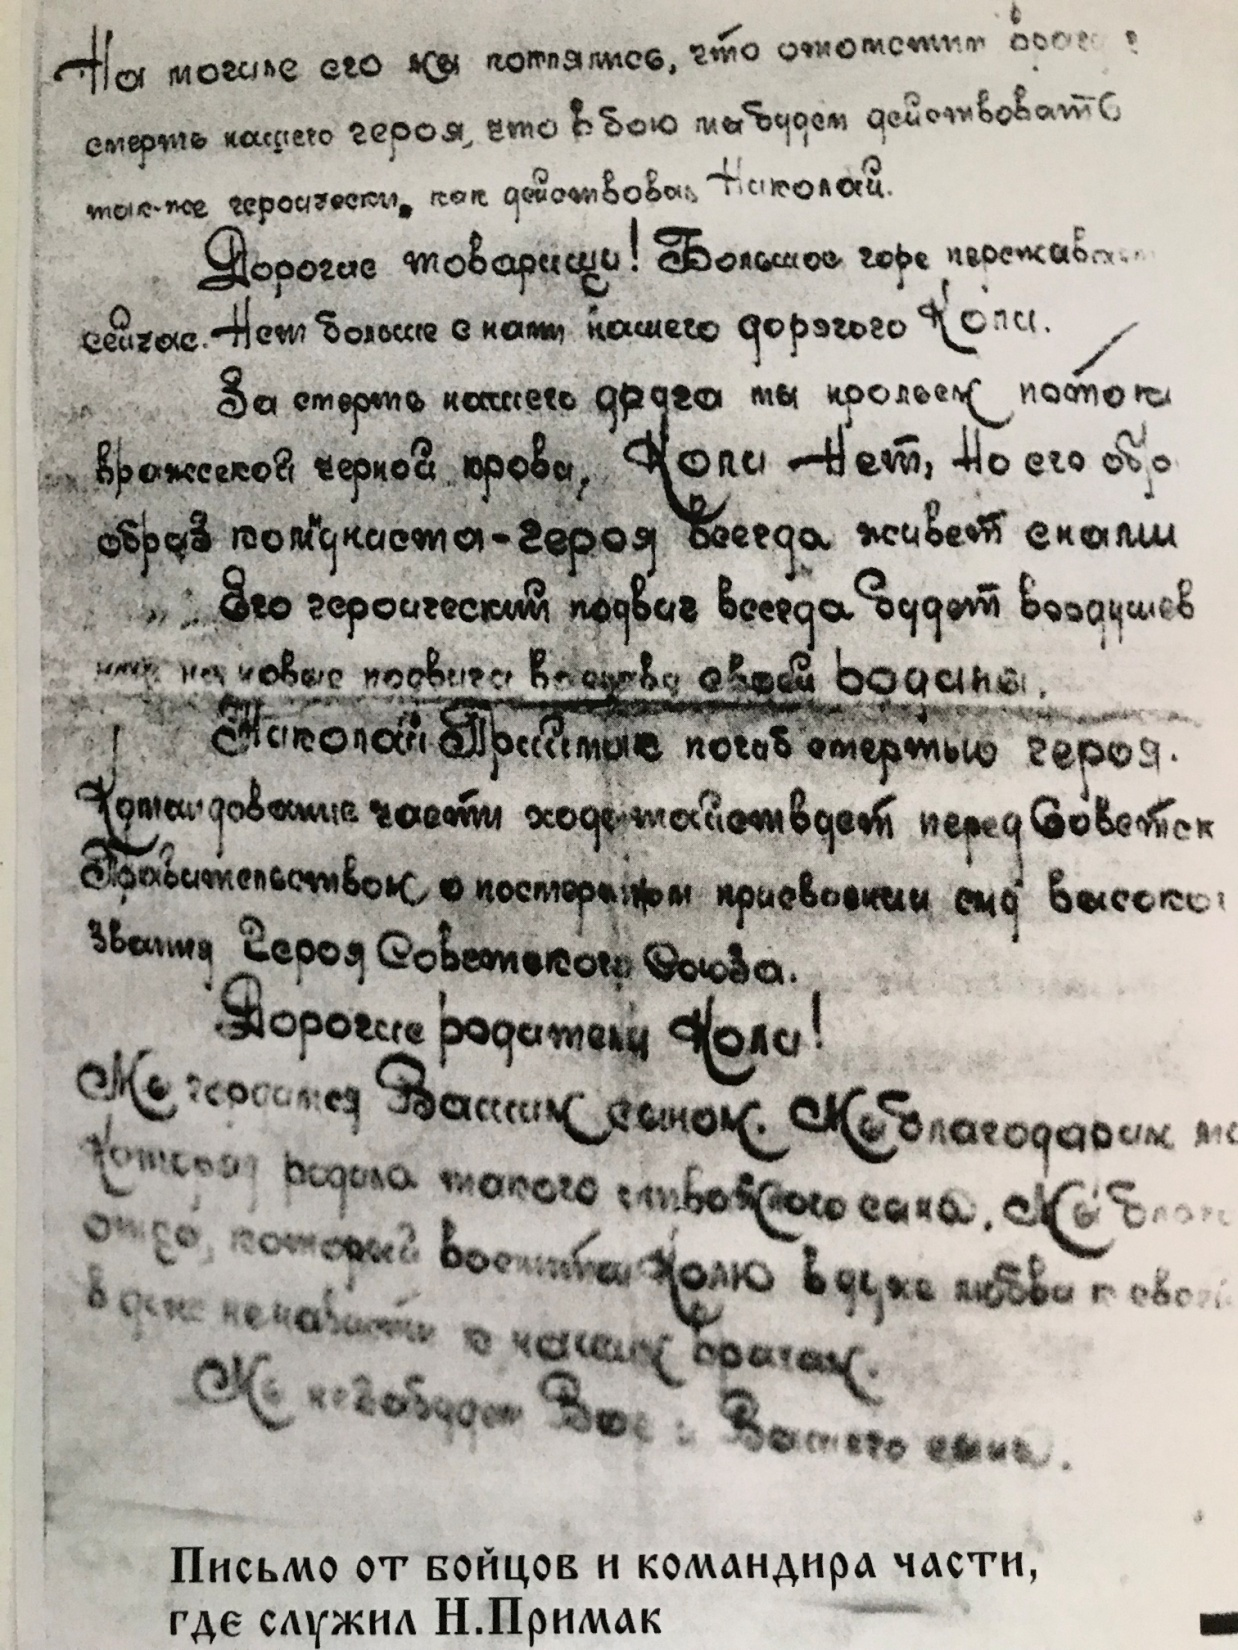 На могиле его мы поклялись, что отомстим
смерть нашего героя, что в бою мы будем действовать
так-же героически, как действовал Николай.
Дорогие товарищи! Большое горе
сейчас. Нет больше с нами нашего дорогого Коли.
За смерть нашего друга мы прольем потоки
вражеской черной крови, Коли Нет, Но его обр
образ комуниста-героя всегда живет с нами
Его героический подвиг всегда будет воодушев
на новые подвиги во своей Родины.
Николай Приймак погиб смертью героя.
Командование части ходотайствует перед Советск
Правительством о посмертном присвоении ему высоко
звания Героя Советского Союза.
Дорогие родители Коли!
Мы гордимся Вашим сыном. Мы благодарим
Которая родила такого сына. Мы
отца, который воспитал Колю в духе любви к своей
в духе ненависти к нашим врагам.
Мы не забудем Вас и Вашего сына.
Письмо от бойцов и командира части,
где служил Н.Примак